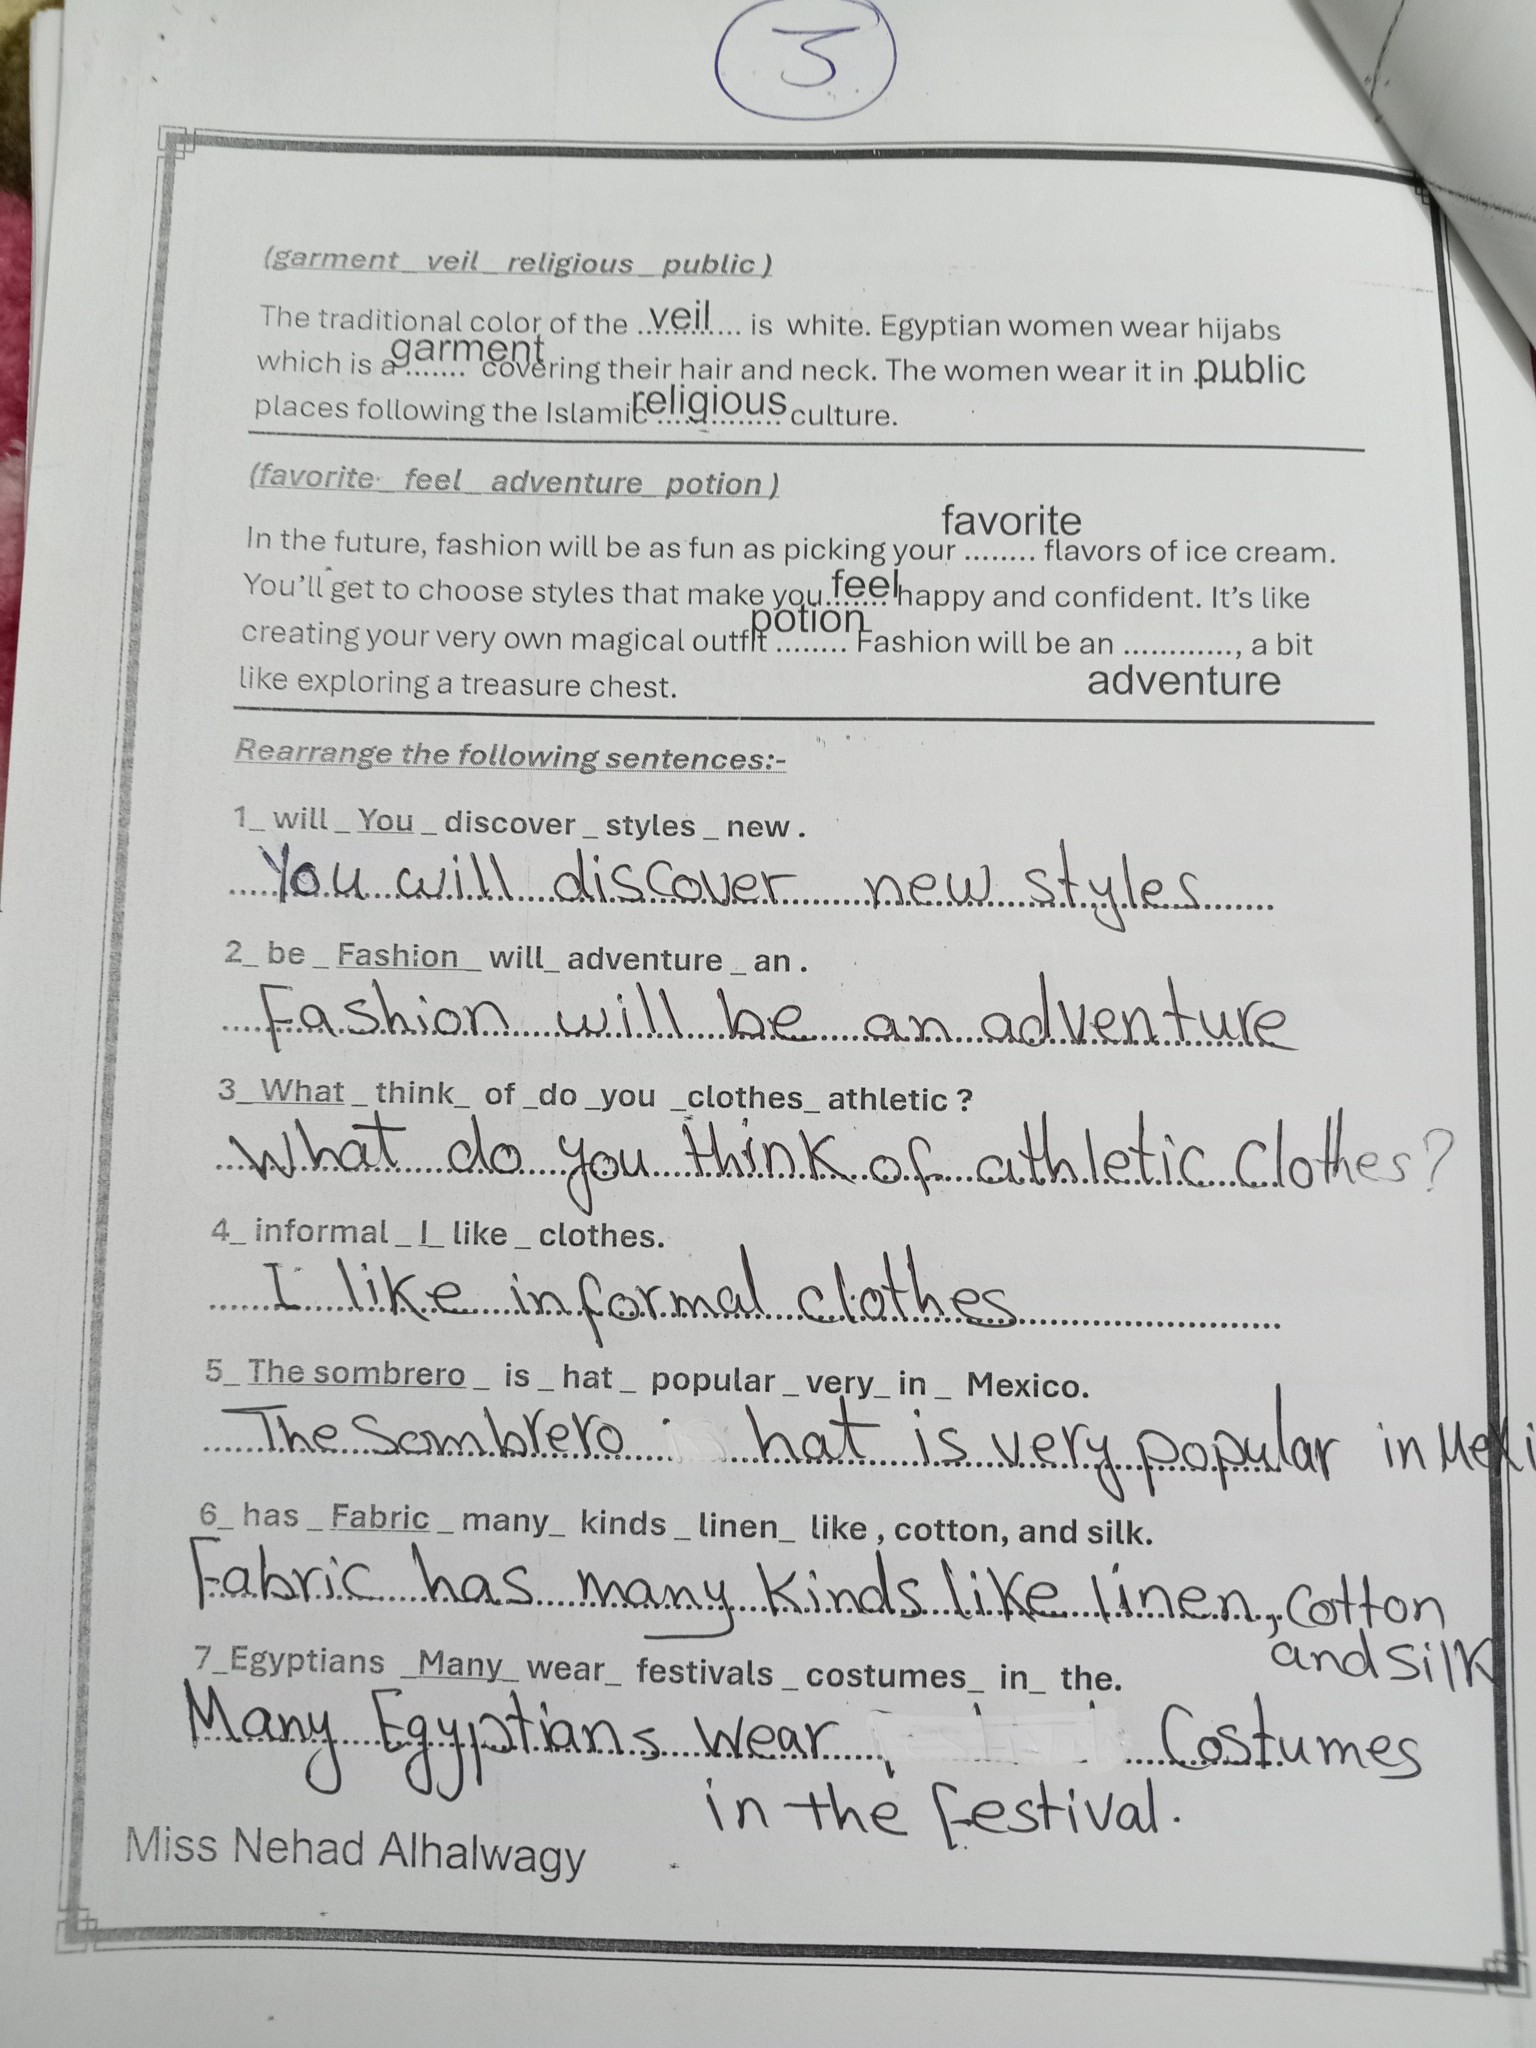 3
(garment_ veil_ religious_ public)
The traditional color of the ...veil... is white. Egyptian women wear hijabs
which is a garment covering their hair and neck. The women wear it in public
places following the Islamic religious culture.
(favorite_ feel_ adventure_ potion)
favorite
In the future, fashion will be as fun as picking your ........ flavors of ice cream.
You'll get to choose styles that make you feel happy and confident. It's like
creating your very own magical outfit potion ........ Fashion will be an ............, a bit
like exploring a treasure chest. adventure
Rearrange the following sentences:-
1_ will _ You _ discover _ styles _ new .
You will discover new styles
2_ be _ Fashion_ will_ adventure _ an .
Fashion will be an adventure
3_ What _ think_ of _do _you _clothes_ athletic ?
What do you think of athletic clothes?
4_ informal _ I_ like _ clothes.
I like informal clothes
5_ The sombrero _ is _ hat _ popular _ very_ in _ Mexico.
The Sombrero hat is very popular in Mexi
6_ has _ Fabric _ many_ kinds _ linen_ like , cotton, and silk.
Fabric has many kinds like linen, cotton
and silk
7_Egyptians _Many_ wear_ festivals _ costumes_ in_ the.
Many Egyptians wear Costumes
in the festival.
Miss Nehad Alhalwagy